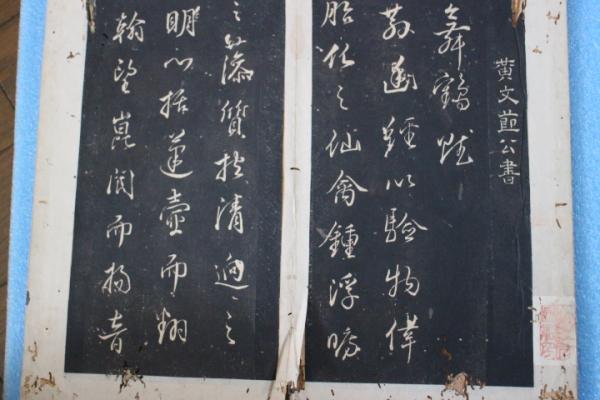 黄文莭公書
舞鶴賦
散幽經以驗物偉
胎化之仙禽鍾浮曠
之藻質抱清迥之
明心指蓬壺而翻
翰望崑閬而揚音